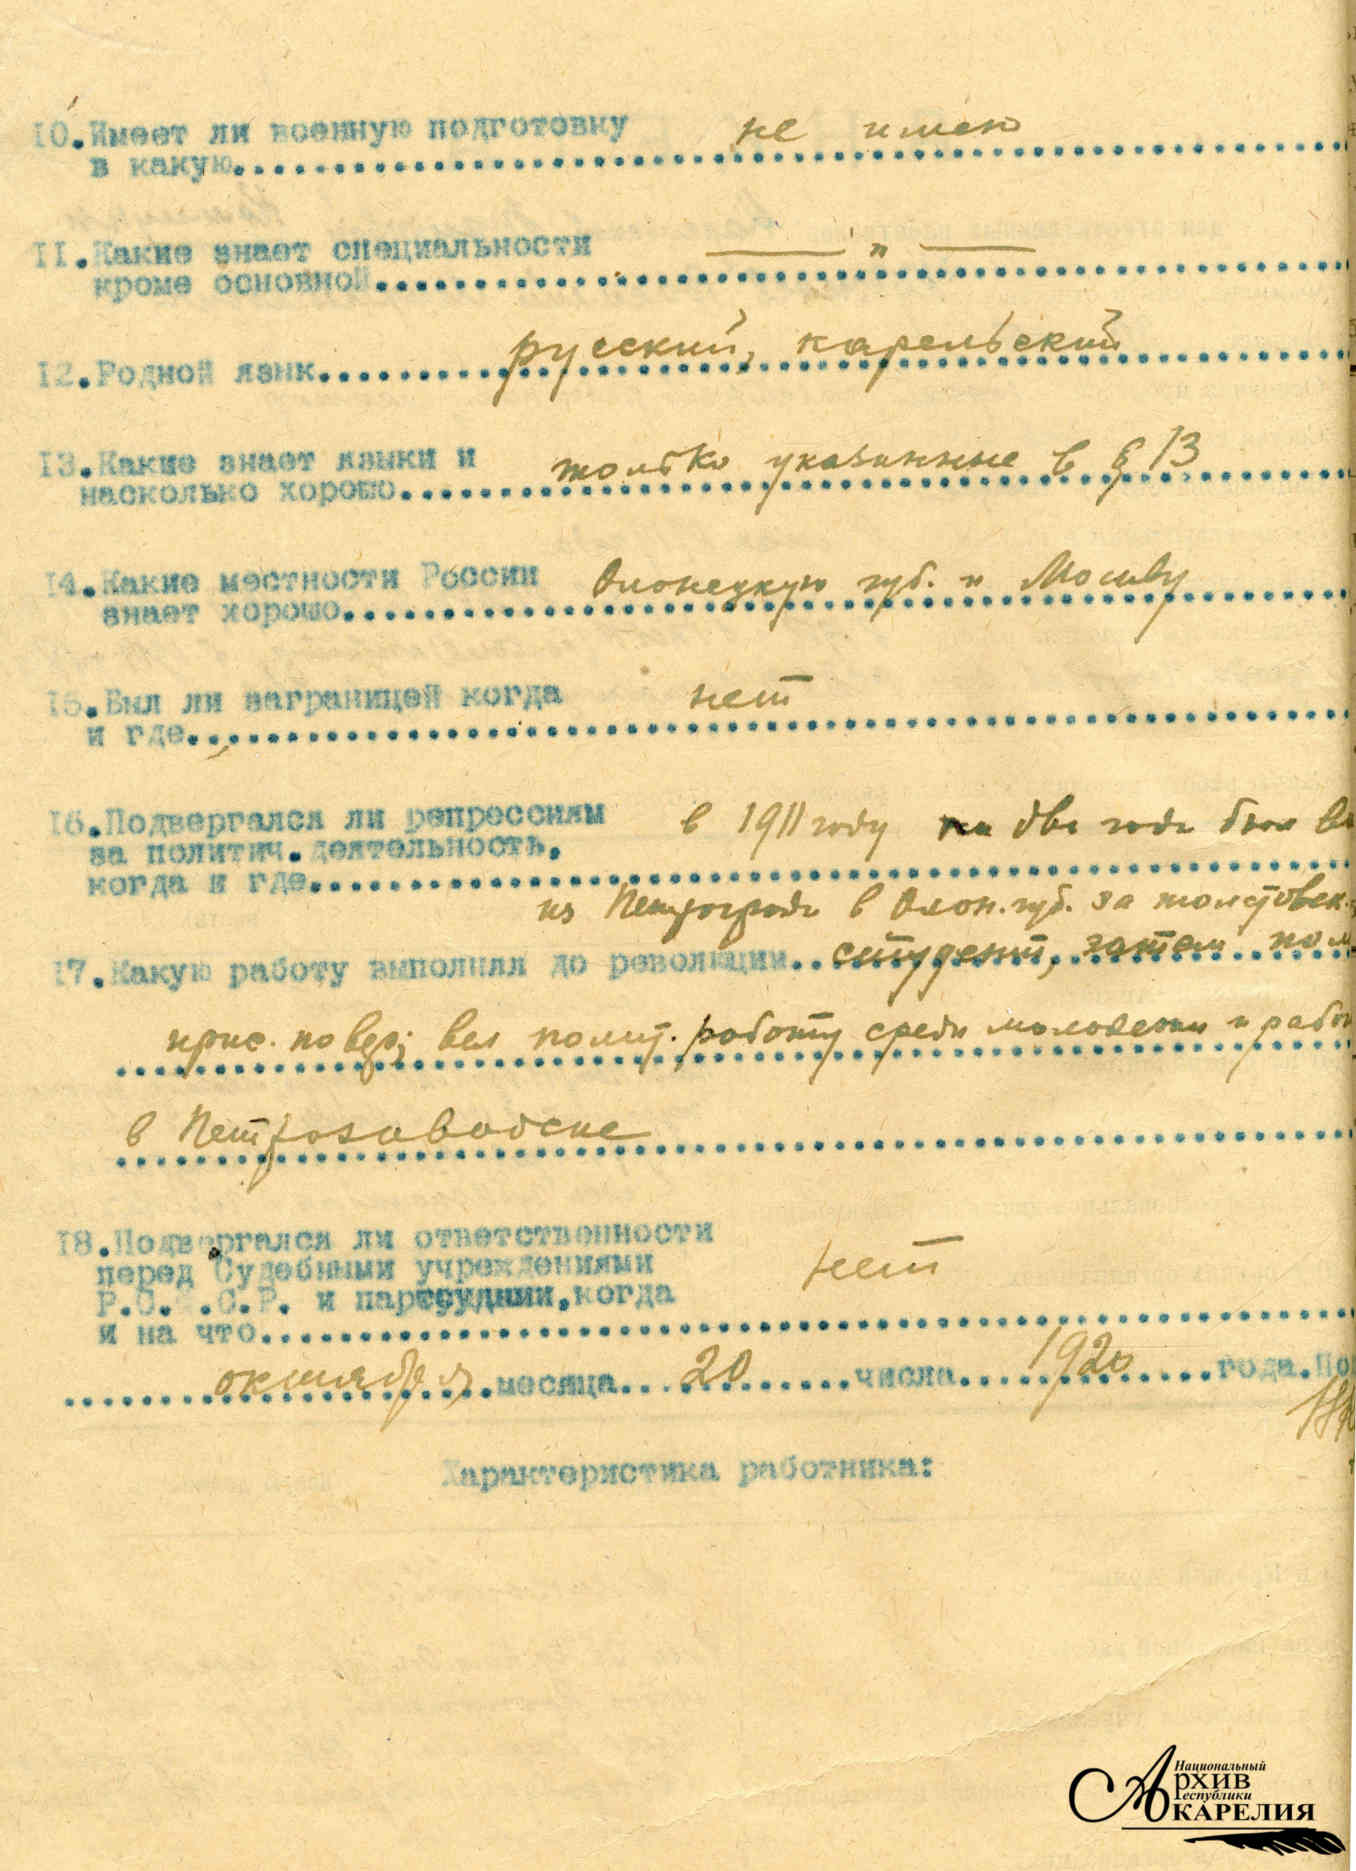 10. Имеет ли военную подготовку не имею
и какую
11. Какие знает специальности — " —
кроме основной
12. Родной язык русский, карельский
13. Какие знает языки и только указанные в § 13
насколько хорошо
14. Какие местности России Олонецкую губ. и Москву
знает хорошо
15. Был ли заграницей когда нет
и где
16. Подвергался ли репрессиям в 1911 году на два года был
за политич. деятельность,
когда и где
из Петрограда в Олон. губ. за
17. Какую работу выполнял до революции студент, затем пом
прис. повер; вел полит. работу среди молодежи и рабоч
в Петрозаводске
18. Подвергался ли ответственности
перед Судебными учреждениями нет
Р.С.Ф.С.Р. и партсудами, когда
и на что
октября месяца 20 числа 1920 года. По
Характеристика работника:
Национальный
Архив
Республики
Карелия